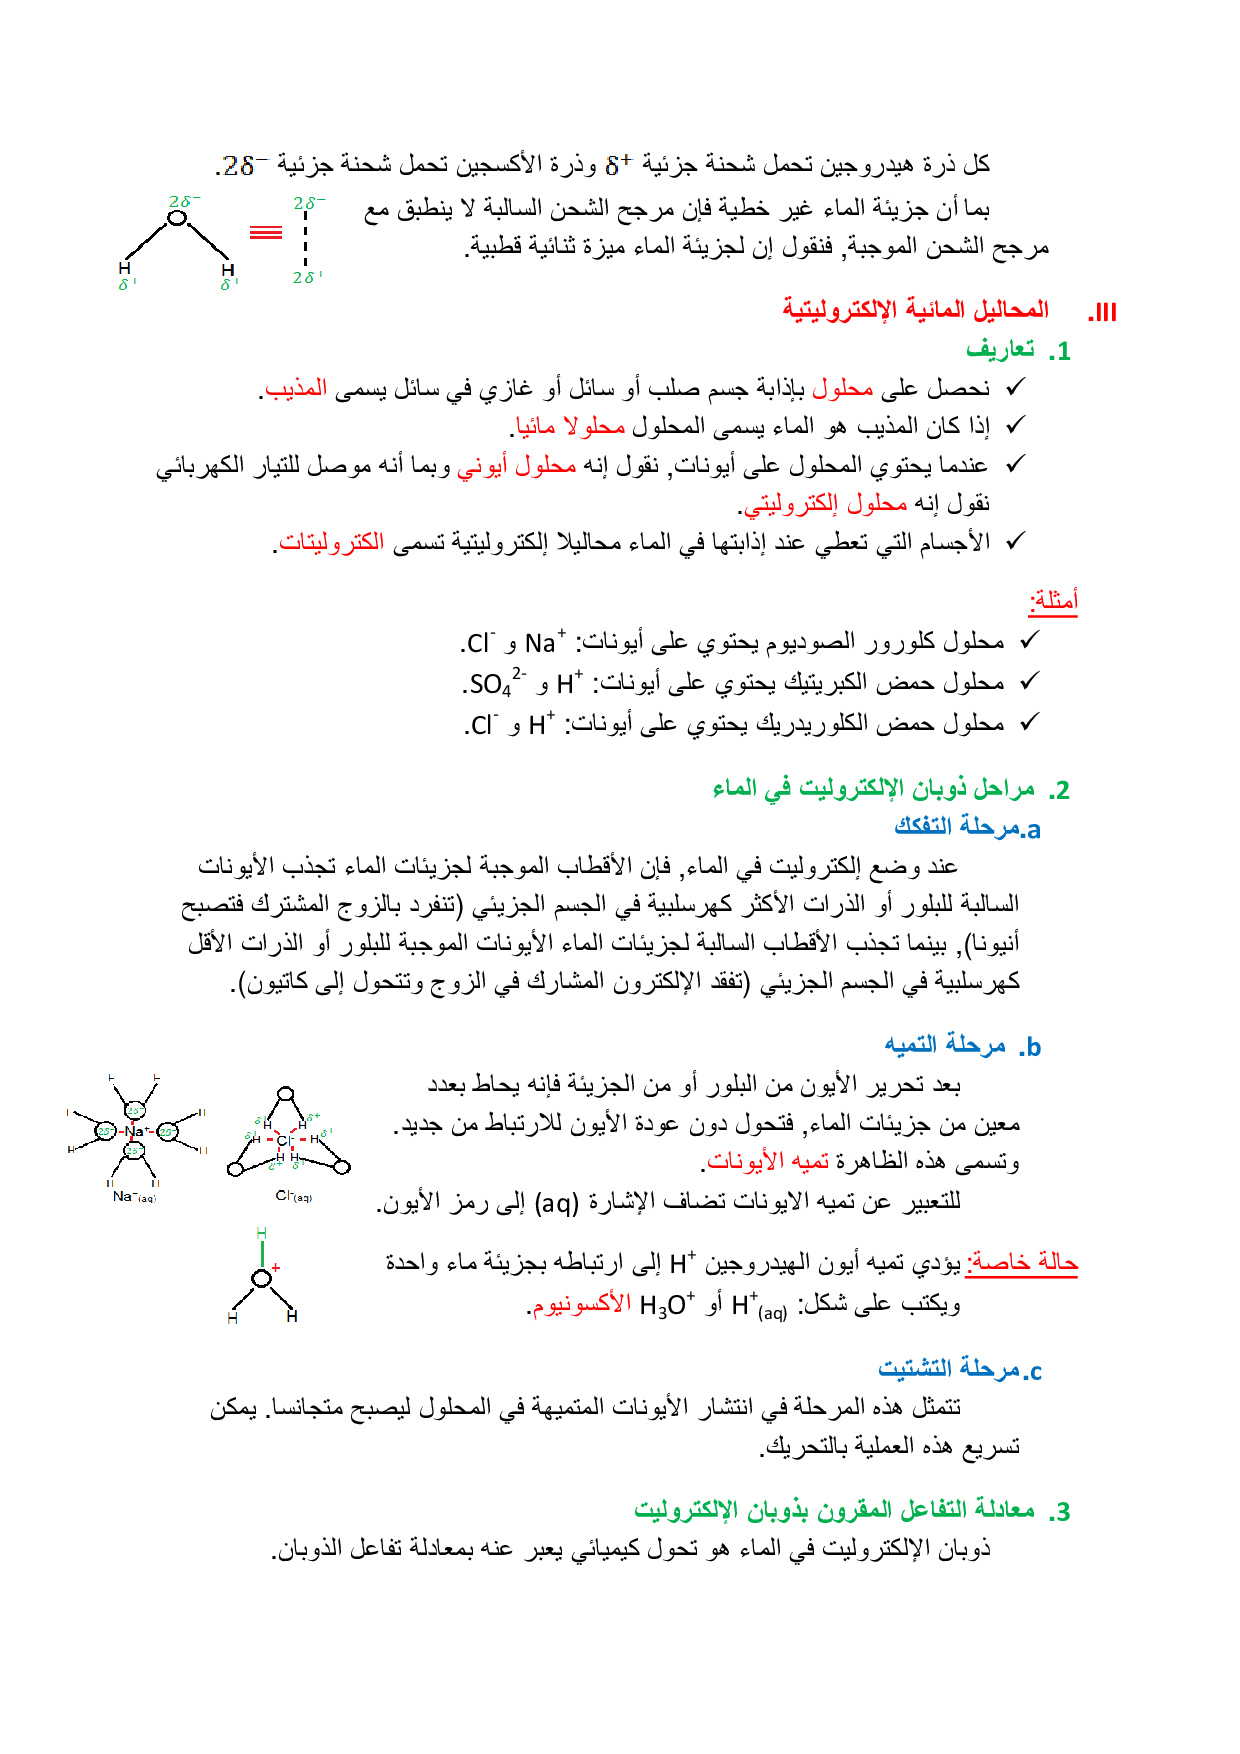 كل ذرة هيدروجين تحمل شحنة جزئية δ⁺ وذرة الأكسجين تحمل شحنة جزئية 2δ⁻.
بما أن جزيئة الماء غير خطية فإن مرجح الشحن السالبة لا ينطبق مع
مرجح الشحن الموجبة, فنقول إن لجزيئة الماء ميزة ثنائية قطبية.
2δ⁻
H
δ⁺
H
δ⁺
2δ⁻
2δ⁺
III. المحاليل المائية الإلكتروليتية
1. تعاريف
✓ نحصل على محلول بإذابة جسم صلب أو سائل أو غازي في سائل يسمى المذيب.
✓ إذا كان المذيب هو الماء يسمى المحلول محلولا مائيا.
✓ عندما يحتوي المحلول على أيونات, نقول إنه محلول أيوني وبما أنه موصل للتيار الكهربائي
نقول إنه محلول إلكتروليتي.
✓ الأجسام التي تعطي عند إذابتها في الماء محاليلا إلكتروليتية تسمى الكتروليتات.
أمثلة:
✓ محلول كلورور الصوديوم يحتوي على أيونات: Na⁺ و Cl⁻.
✓ محلول حمض الكبريتيك يحتوي على أيونات: H⁺ و SO₄²⁻.
✓ محلول حمض الكلوريدريك يحتوي على أيونات: H⁺ و Cl⁻.
2. مراحل ذوبان الإلكتروليت في الماء
a.مرحلة التفكك
عند وضع إلكتروليت في الماء, فإن الأقطاب الموجبة لجزيئات الماء تجذب الأيونات
السالبة للبلور أو الذرات الأكثر كهرسلبية في الجسم الجزيئي (تنفرد بالزوج المشترك فتصبح
أنيونا), بينما تجذب الأقطاب السالبة لجزيئات الماء الأيونات الموجبة للبلور أو الذرات الأقل
كهرسلبية في الجسم الجزيئي (تفقد الإلكترون المشارك في الزوج وتتحول إلى كاتيون).
b. مرحلة التميه
بعد تحرير الأيون من البلور أو من الجزيئة فإنه يحاط بعدد
معين من جزيئات الماء, فتحول دون عودة الأيون للارتباط من جديد.
وتسمى هذه الظاهرة تميه الأيونات.
للتعبير عن تميه الايونات تضاف الإشارة (aq) إلى رمز الأيون.
H H
H 2δ⁻ H
2δ⁻ Na⁺ 2δ⁻
H 2δ⁻ H
H H
Na⁺(aq)
δ⁺ H H δ⁺
δ⁺ H Cl⁻ H δ⁺
H H
δ⁺ δ⁺
Cl⁻(aq)
حالة خاصة: يؤدي تميه أيون الهيدروجين H⁺ إلى ارتباطه بجزيئة ماء واحدة
ويكتب على شكل: H⁺(aq) أو H₃O⁺ الأكسونيوم.
H
+
H H
c.مرحلة التشتيت
تتمثل هذه المرحلة في انتشار الأيونات المتميهة في المحلول ليصبح متجانسا. يمكن
تسريع هذه العملية بالتحريك.
3. معادلة التفاعل المقرون بذوبان الإلكتروليت
ذوبان الإلكتروليت في الماء هو تحول كيميائي يعبر عنه بمعادلة تفاعل الذوبان.